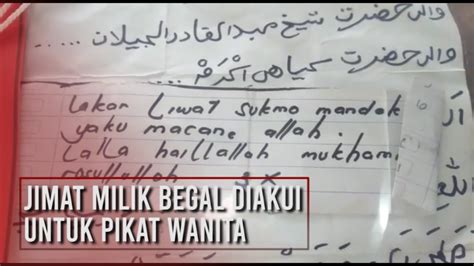 والى حضرت شيخ عبد القادر الجيلان .....
والى حضرت كياهى اكرم ...
lakon liwat sukmo mandek
yaku macane allah.
lalla haillallah mukham
rosullallah 3 x
JIMAT MILIK BEGAL DIAKUI
UNTUK PIKAT WANITA